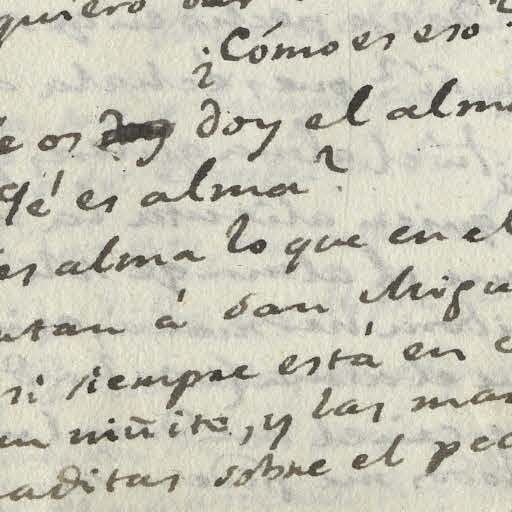 quiero
¿Cómo es eso?
e os doy el alma
Qé es alma?
es alma lo que en el
ntan á San Migu
si siempre está en c
un niñito, y las man
aditas sobre el pec